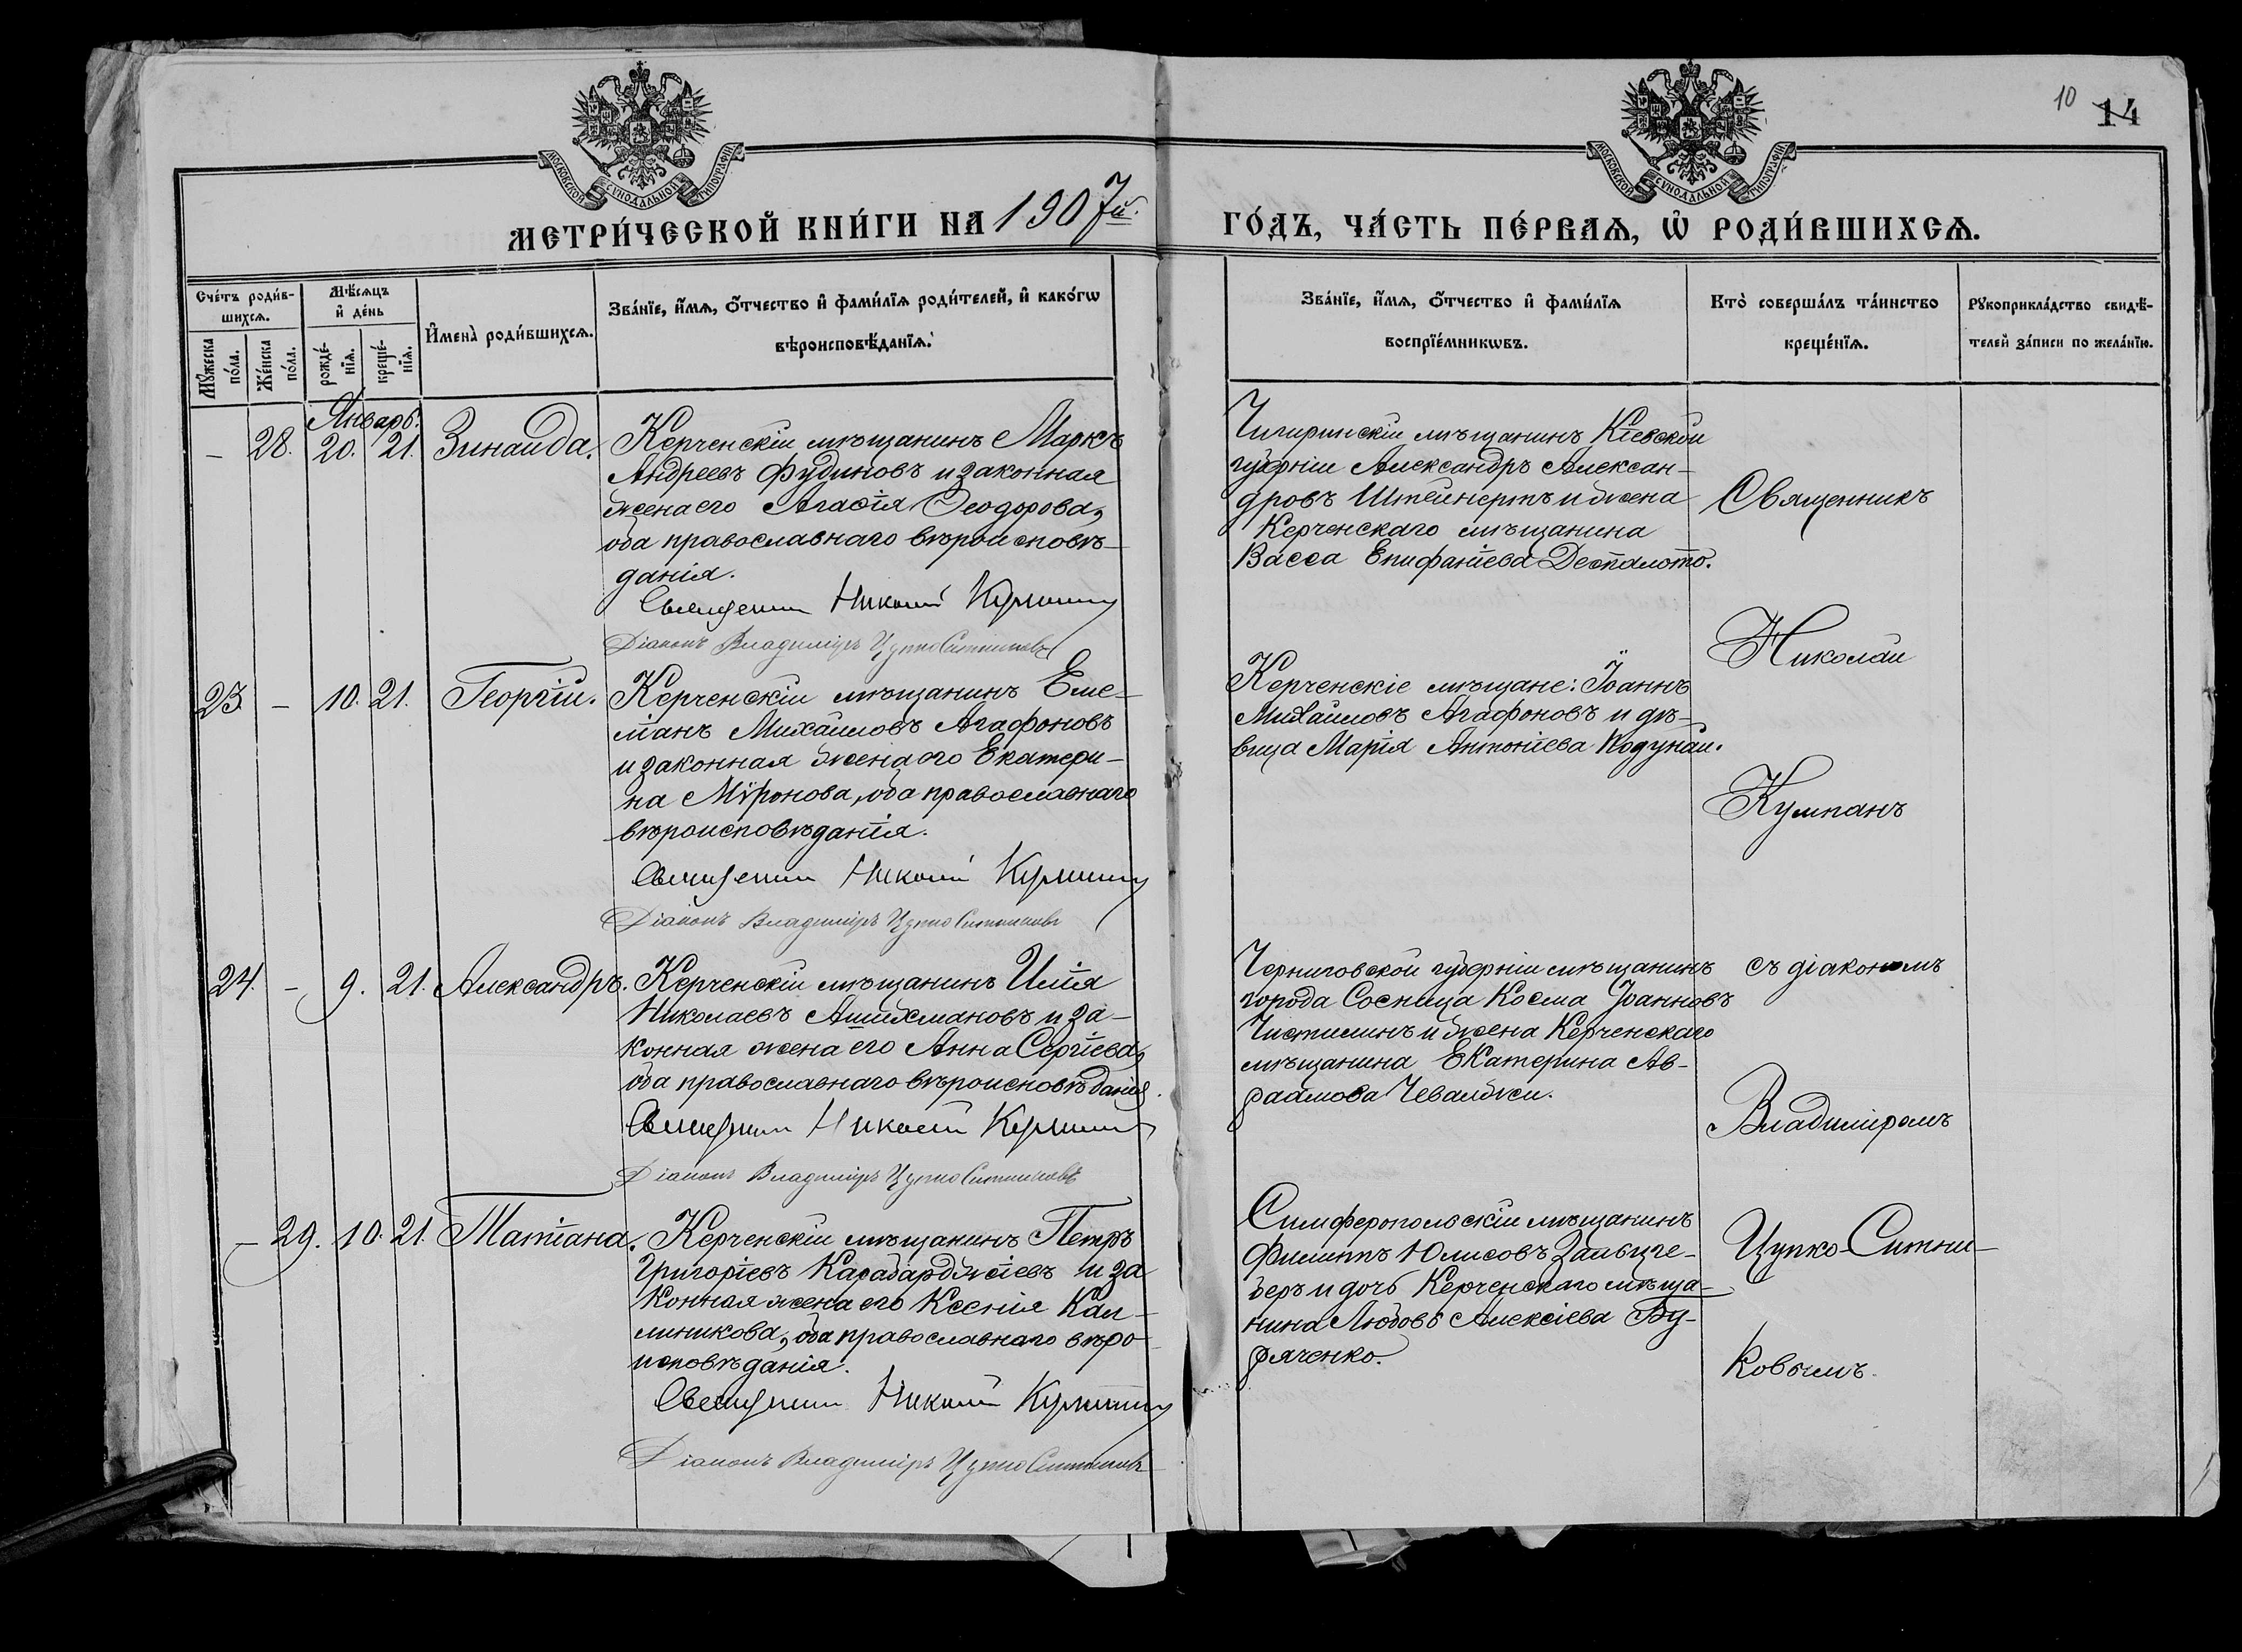 10 14
МОСКОВСКОЙ СѴНОДАЛЬНОЙ ТИПОГРАФІИ
МОСКОВСКОЙ СѴНОДАЛЬНОЙ ТИПОГРАФІИ
МЕТРИ́ЧЕСКОЙ КНИ́ГИ НА 1907й.
ГО́ДЪ, ЧА́СТЬ ПЕ́РВАѦ, Ѡ҆ РОДИ́ВШИХСѦ.
Сче́тъ роди́в-
шихсѧ.
Мꙋ́жеска по́ла.
Же́нска по́ла.
Мѣ́сѧцъ
и҆ де́нь
рожде́-
нїѧ.
креще́-
нїѧ.
И҆мена̀ роди́вшихсѧ.
Зва́нїе, и҆́мѧ, ѻ҆́тчество и҆ фами́лїѧ роди́телей, и҆ како́гѡ
вѣроисповѣ́данїѧ.
Зва́нїе, и҆́мѧ, ѻ҆́тчество и҆ фами́лїѧ
воспрїе́мникѡвъ.
Кто̀ соверша́лъ та́инство
креще́нїѧ.
Рꙋкоприкла́дство свидѣ́-
телей за́писи по жела́нїю.
Январь.
– 28. 20. 21. Зинаида.
Керченскій мѣщанинъ Маркъ
Андреевъ Фудиновъ и законная
жена его Агаѳія Ѳеодорова,
оба православнаго вѣроисповѣ-
данія.
Священникъ Николай Кумпанъ
Діаконъ Владиміръ Цупко Ситниковъ
Чигиринскій мѣщанинъ Кіевской
губерніи Александръ Алексан-
дровъ Штейнертъ и жена
Керченскаго мѣщанина
Васса Епифаніева Деспалото.
23. – 10. 21. Георгій.
Керченскій мѣщанинъ Еме-
ліанъ Михайловъ Агафоновъ
и законная жена его Екатери-
на Мѵронова, оба православнаго
вѣроисповѣданія.
Священникъ Николай Кумпанъ
Діаконъ Владиміръ Цупко Ситниковъ
Керченскіе мѣщане: Іоаннъ
Михайловъ Агафоновъ и дѣ-
вица Марія Антоніева Кодунай.
24. – 9. 21. Александръ.
Керченскій мѣщанинъ Илія
Николаевъ Ашихмановъ и за-
конная жена его Анна Сергіева,
оба православнаго вѣроисповѣданія.
Священникъ Николай Кумпанъ
Діаконъ Владиміръ Цупко Ситниковъ
Черниговской губерніи мѣщанинъ
города Сосница Косма Іоанновъ
Чистилинъ и жена Керченскаго
мѣщанина Екатерина Ав-
раамова Чевалжи.
– 29. 10. 21. Татіана.
Керченскій мѣщанинъ Петръ
Григоріевъ Карабарджіевъ и за
конная жена его Ксенія Кал-
линикова, оба православнаго вѣро
исповѣданія.
Священникъ Николай Кумпанъ
Діаконъ Владиміръ Цупко Ситниковъ
Симферопольскій мѣщанинъ
Филиппъ Юлисовъ Зальцге-
беръ и дочь Керченскаго мѣща-
нина Любовь Алексіева Бу-
ряченко.
Священникъ
Николай
Кумпанъ
съ діакономъ
Владиміромъ
Цупко-Ситни-
ковымъ.